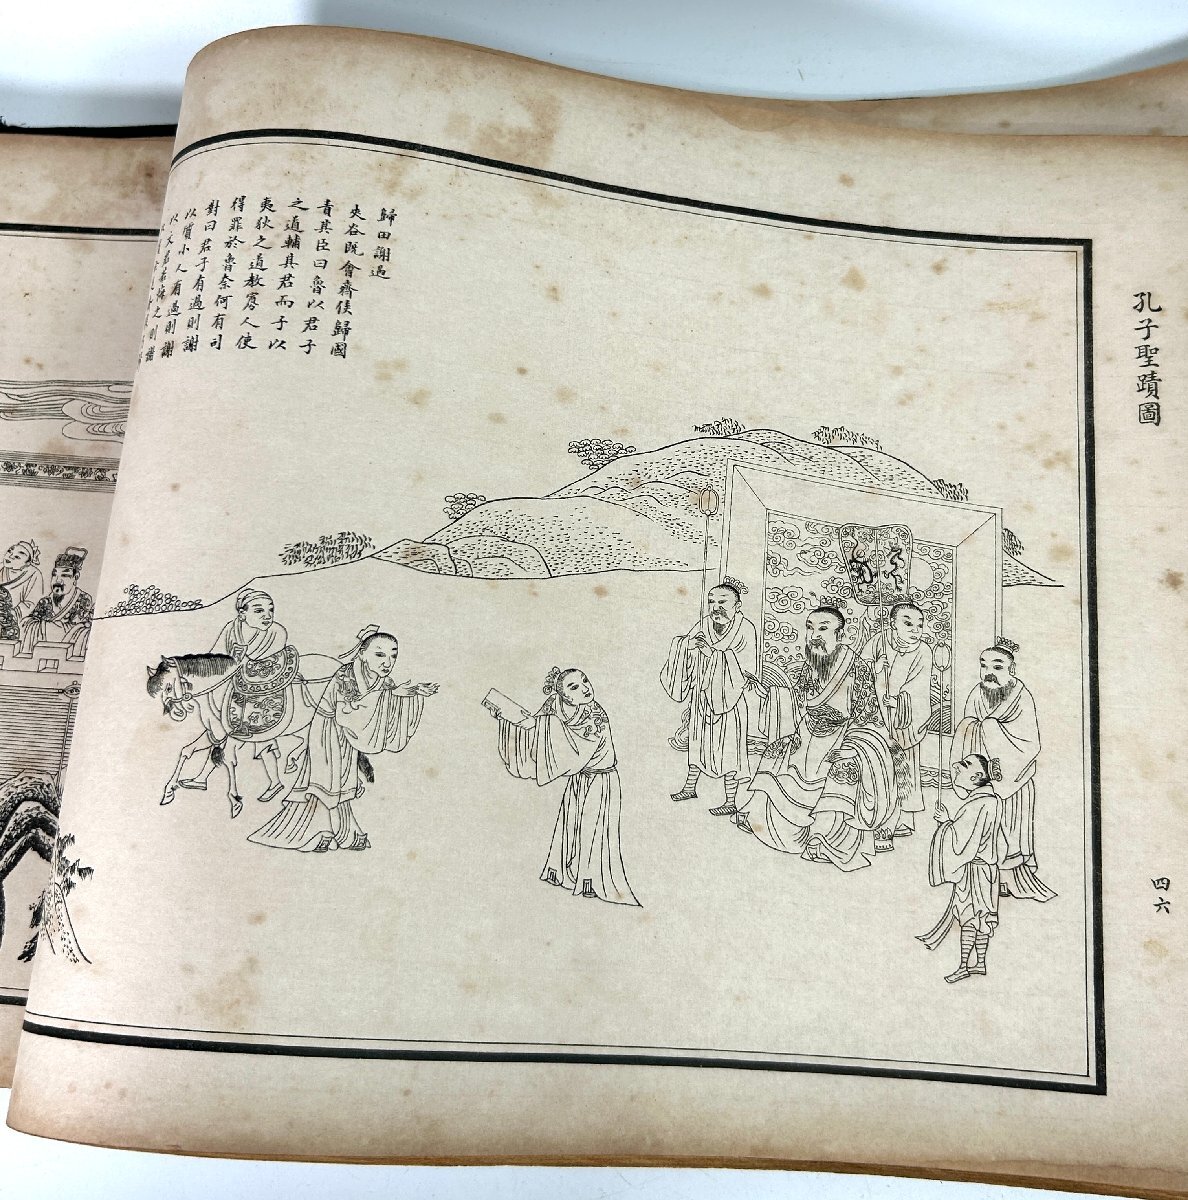 孔子聖蹟圖
四六
歸田謝過
夾谷既會齊侯歸國
責其臣曰魯以君子
之道輔其君而子以
夷狄之道教寡人使
得罪於魯奈何有司
對曰君子有過則謝
以質小人有過則謝
以文君若之則謝